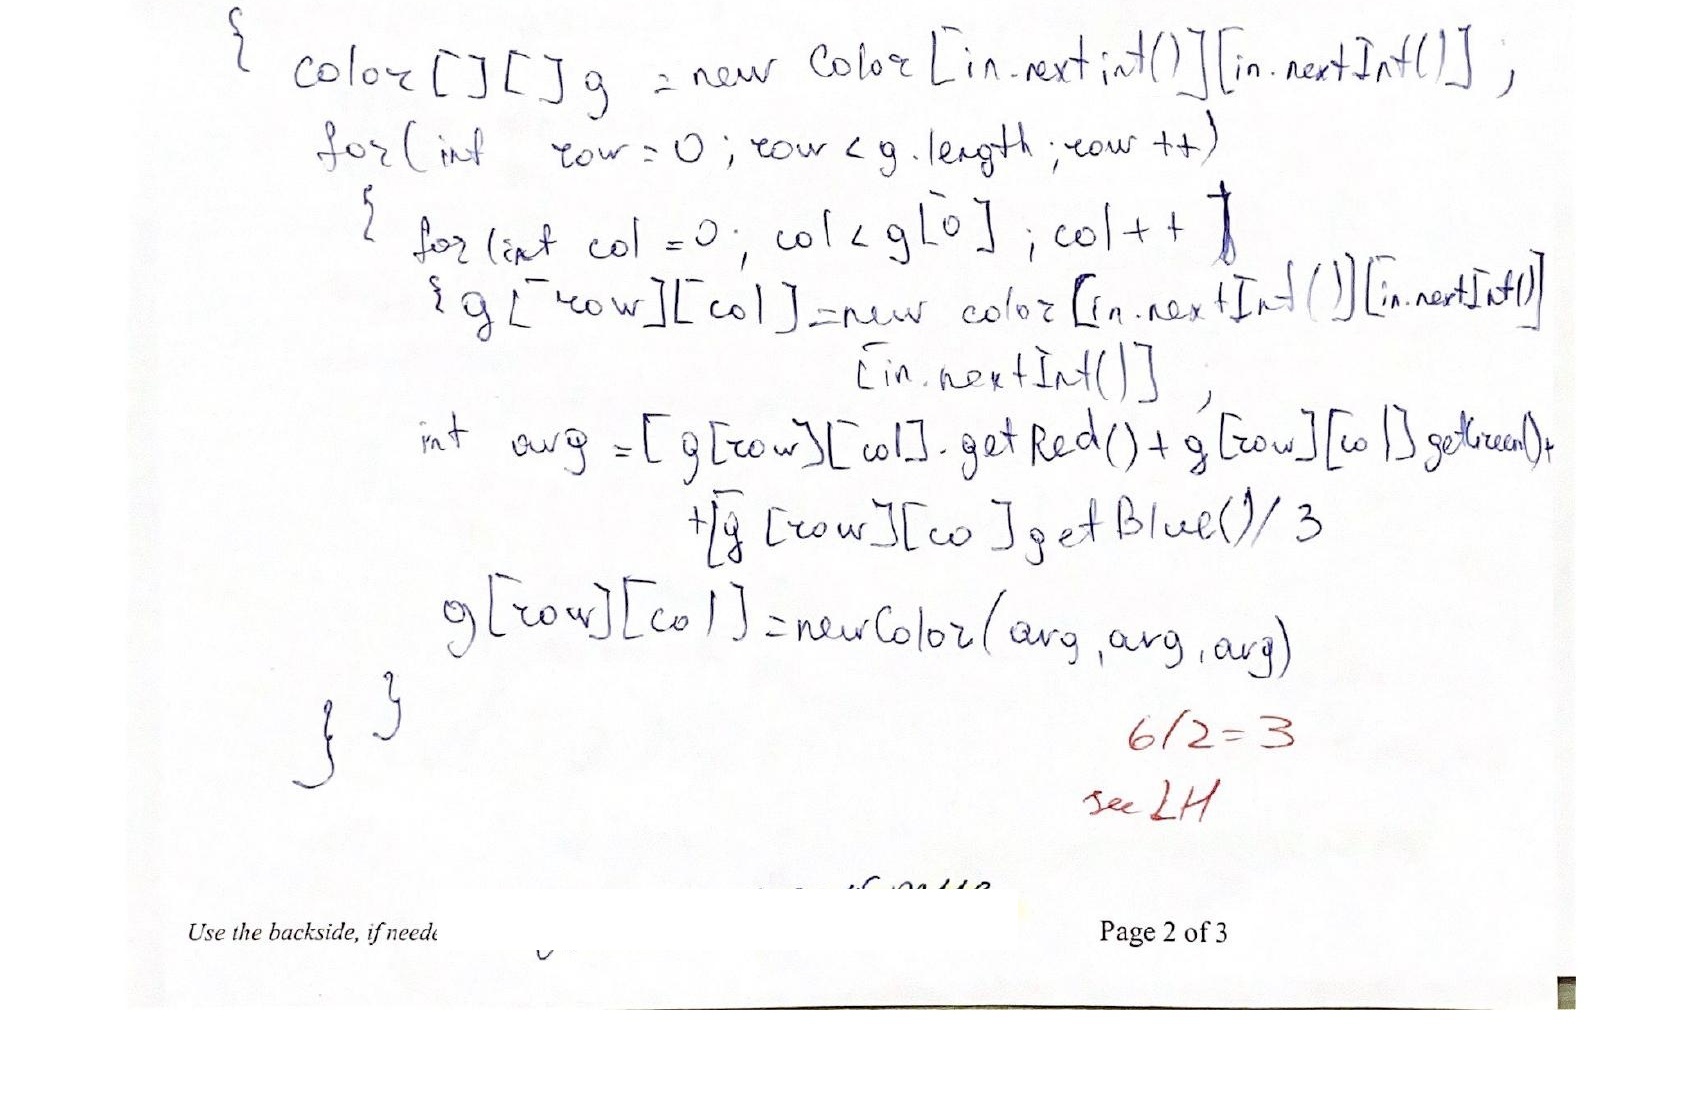 { color [ ] [ ] g = new Color [in.nextint()][in.nextInt()] ;
for(int row = 0 ; row < g.length ; row ++)
{ for(int col = 0 ; col < g[0] ; col ++ ]
{ g[row][col] = new color [in.nextInt()][in.nextInt()]
[in.nextInt()] ;
int avg = [g[row][col].getRed() + g[row][col] getGreen() +
+[g [row][co ] getBlue()/ 3
g[row][col] = new Color(avg, avg, avg)
} }
6/2 = 3
see LH
Use the backside, if neede
Page 2 of 3